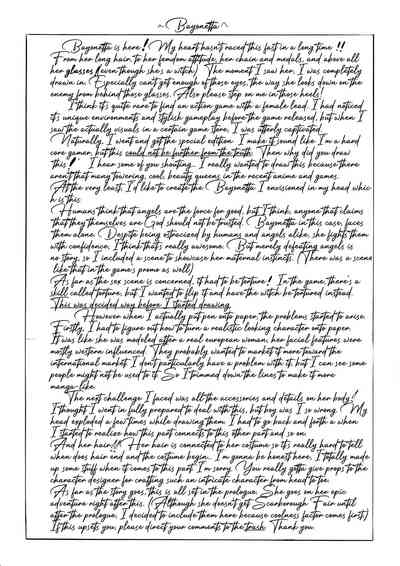 ~ Bayonetta ~
Bayonetta is here! My heart hasn't raced this fast in a long time!!
From her long hair, to her femdom attitude, her chain and medals, and above all
her glasses (even though she's a witch). The moment I saw her, I was completely
drawn in. Especially can't get enough of those eyes, the way she looks down on the
enemy from behind those glasses. (Also please step on me in those heels)
I think it's quite rare to find an action game with a female lead. I had noticed
it's unique environments and stylish gameplay before the game released, but when I
saw the actually visuals in a certain game store, I was utterly captivated.
Naturally, I went and got the special edition. I make it sound like I'm a hard
core gamer, but this could not be further from the truth. Then why did you draw
this! I hear some of you shouting... I really wanted to draw this because there
aren't that many towering, cool, beauty queens in the recent anime and games.
(At the very least, I'd like to create the Bayonetta I envisioned in my head whic
h is this.
Humans think that angels are the force for good, but I think, anyone that claims
that they themselves are God should not be trusted. Bayonetta in this case, faces
them alone. Despite being ostracized by humans and angels alike, she fights them
with confidence, I think that's really awesome. But merely defeating angels is
no story, so I included a scene to showcase her maternal instincts. (There was a scene
like that in the game's promo as well)
As far as the sex scene is concerned, it had to be torture! In the game, there's a
skill called torture, but I wanted to flip it and have the witch be tortured instead.
This was decided way before I started drawing.
However when I actually put pen onto paper, the problems started to arise.
Firstly, I had to figure out how to turn a realistic looking character onto paper.
It was like she was modeled after a real european woman, her facial features were
mostly western influenced. They probably wanted to market it more toward the
international market. I don't particularly have a problem with it, but I can see some
people might not be used to it. So I trimmed down the lines to make it more
manga-like.
The next challenge I faced was all the accessories and details on her body!
I thought I went in fully prepared to deal with this, but boy was I so wrong. My
head exploded a few times while drawing them. I had to go back and forth a when
I started to realize how this part connects to this other part and so on.
And her hair!! Her hair is connected to her costume so it's really hard to tell
when does hair end and the costume begin. I'm gonna be honest here, I totally made
up some stuff when it comes to this part. I'm sorry. You really gotta give props to the
character designer for crafting such an intricate character from head to toe.
(As far as the story goes, this is all set in the prologue. She goes on her epic
adventure right after this. (Although she doesn't get Scarborough Fair until
after the prologue, I decided to include them here because coolness factor comes first)
If this upsets you, please direct your comments to the trash. Thank you.